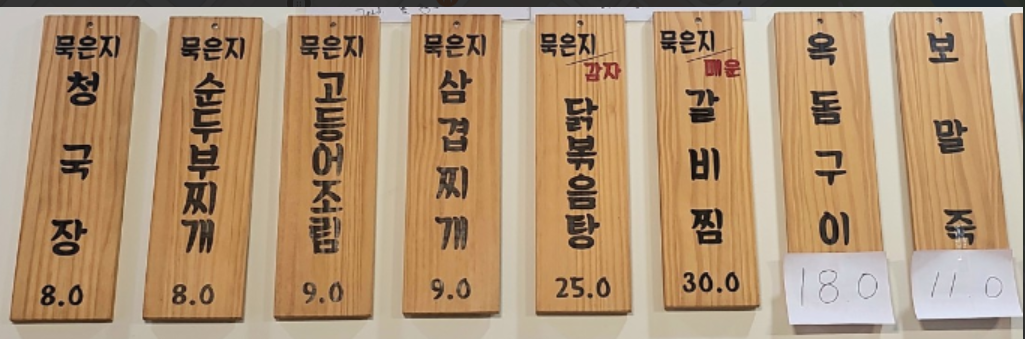 묵은지
청국장
8.0
묵은지
순두부찌개
8.0
묵은지
고등어조림
9.0
묵은지
삼겹찌개
9.0
묵은지/감자
닭볶음탕
25.0
묵은지/매운
갈비찜
30.0
옥돔구이
18.0
보말죽
11.0